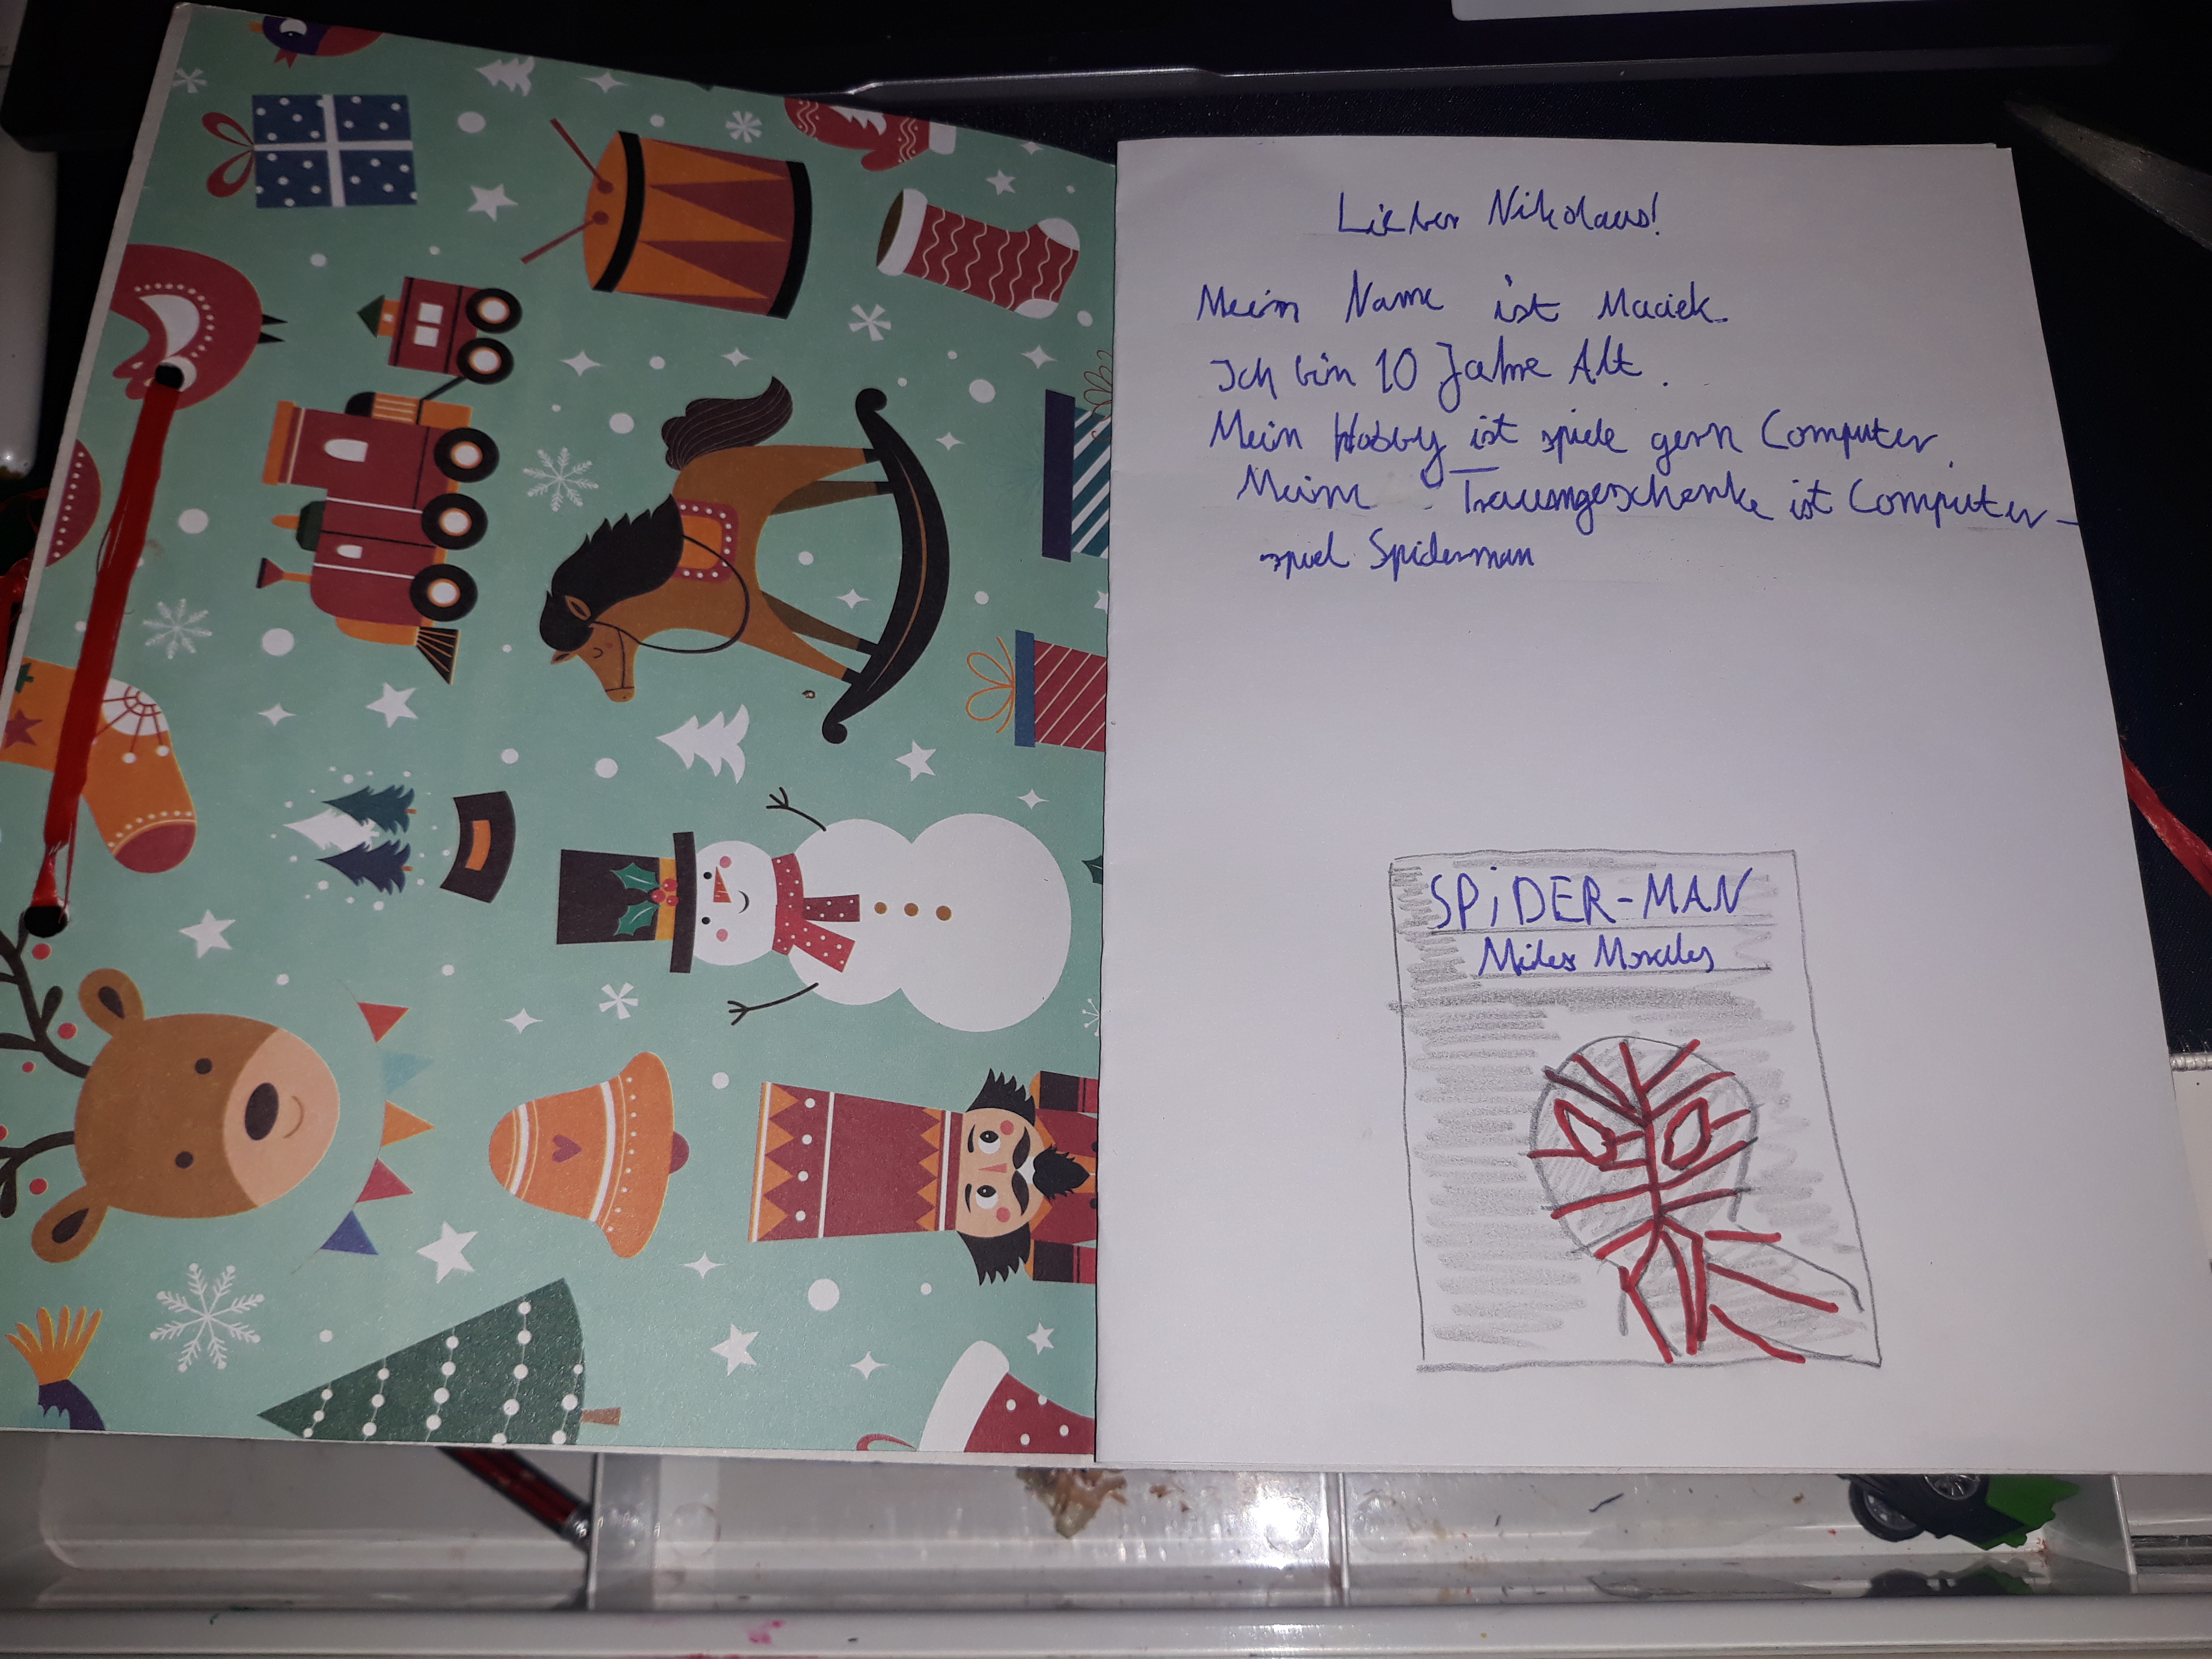 Lieber Nikolaus!
Mein Name ist Maciek.
Ich bin 10 Jahre Alt.
Mein Hobby ist spiele gern Computer.
Meine Traumgeschenke ist Computer-
spiel Spiderman
SPiDER-MAN
Miles Morales